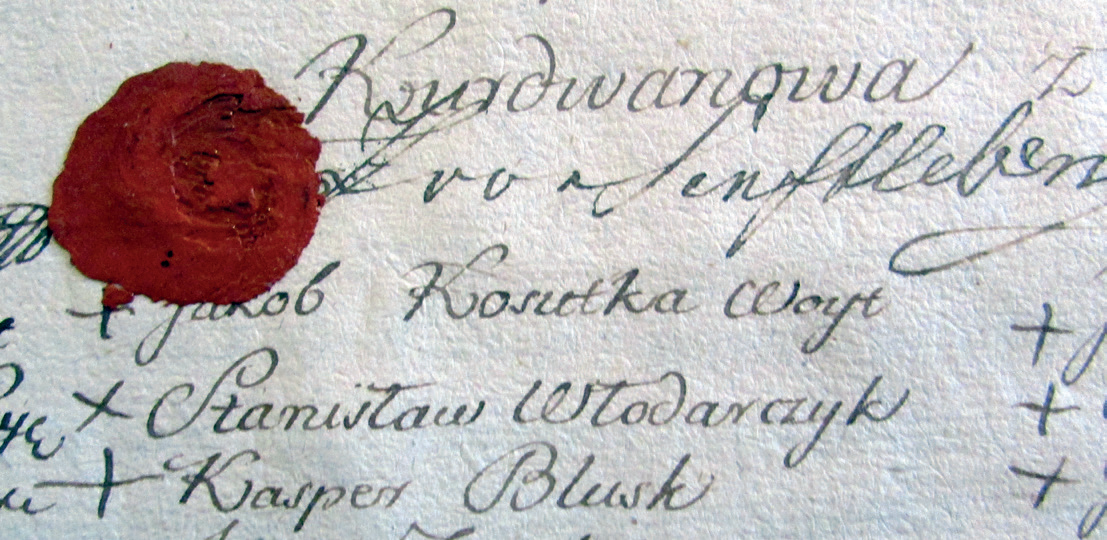 Kurdwanowa z
Senftleben
+ Jakob Kosutka Woyt +
+ Stanisław Włodarczyk +
+ Kasper Blusk +